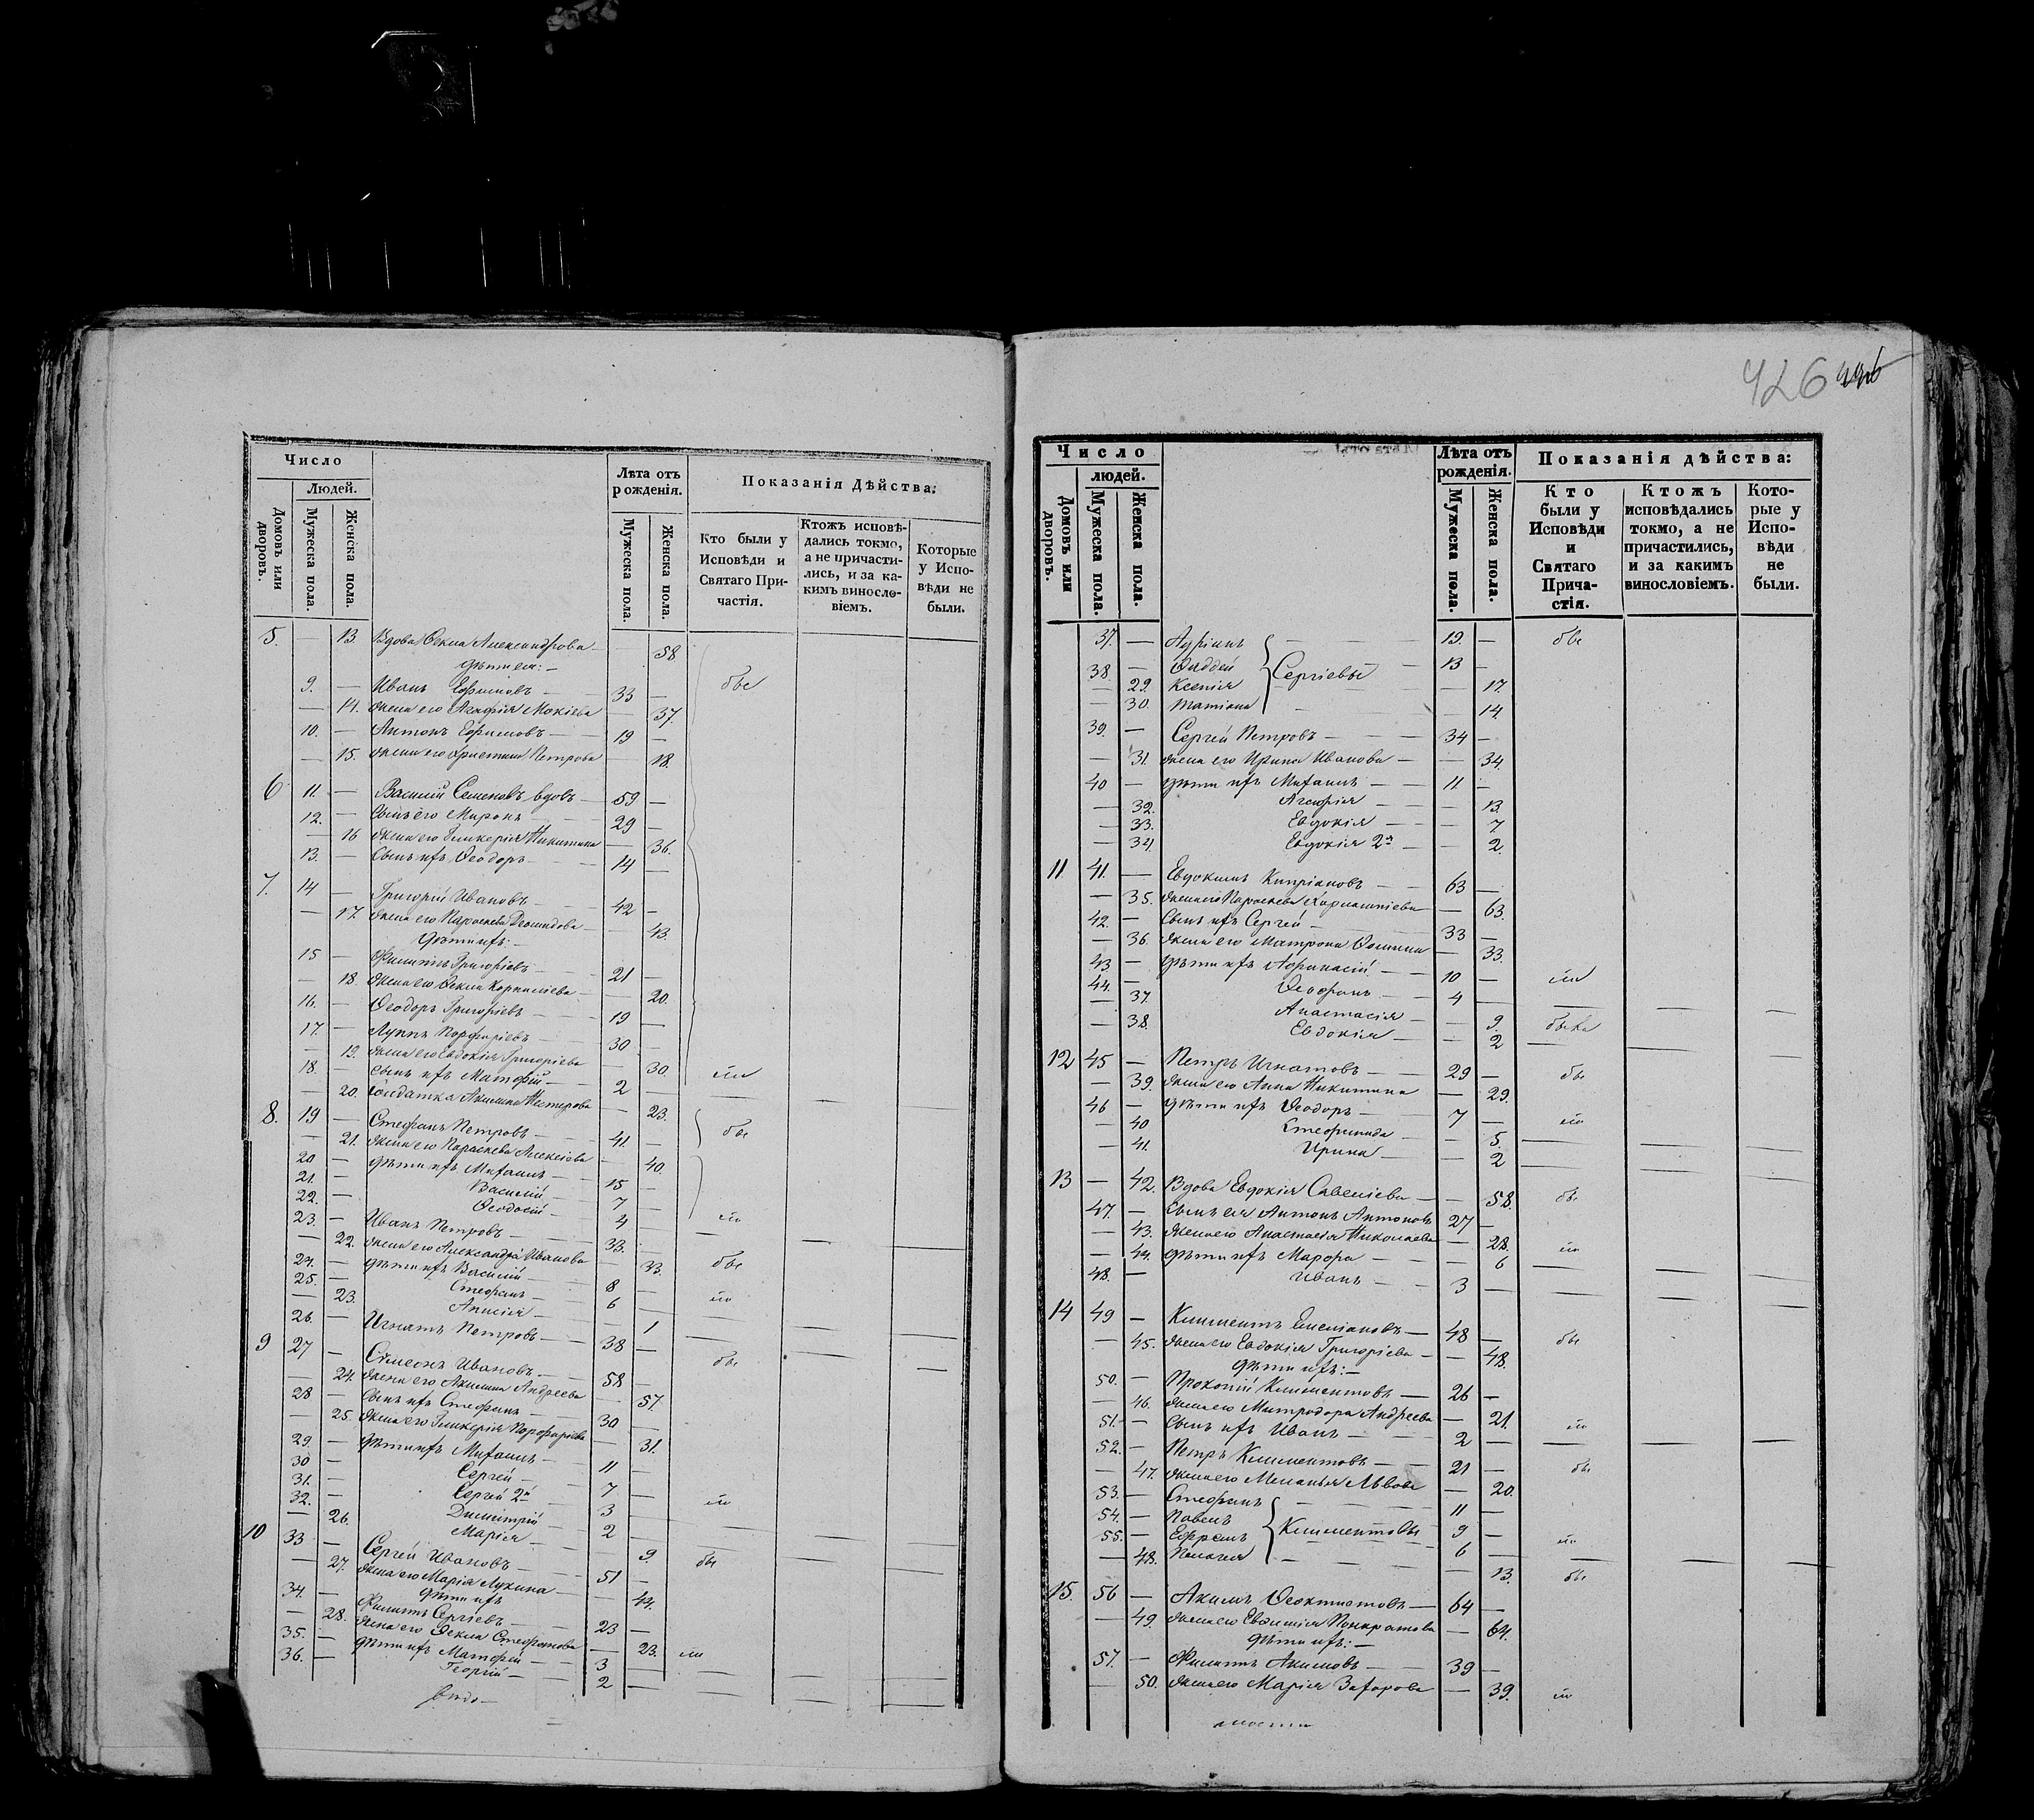 426
Число
Людей.
Домовъ или дворовъ.
Мужеска пола.
Женска пола.
Лѣта отъ рожденія.
Мужеска пола.
Женска пола.
Показанія Дѣйства:
Кто были у Исповѣди и Святаго Причастія.
Ктожъ исповѣдались токмо, а не причастились, и за какимъ винословіемъ.
Которые у Исповѣди не были.
5. — 13. Вдова Ѳекла Александрова — 58
Дѣти ея: —
9. — Иванъ Ефимовъ — 33 — бы
— 14. Жена его Агафія Мокіева — 37.
10. — Антонъ Ефимовъ — 19 —
— 15. Жена его Христина Петрова — 18.
6 11. — Василій Семеновъ вдовъ — 59 —
12. — Сынъ его Миронъ — 29 —
— 16 Жена его Гликерія Никитина — 36.
13. — Сынъ ихъ Ѳеодоръ — 14 —
7. 14 — Григорій Ивановъ — 42 —
— 17. Жена его Параскева Демидова — 43.
Дѣти ихъ: —
15 — Филиппъ Григоріевъ — 21 —
— 18. Жена его Ѳекла Корниліева — 20.
16. — Ѳеодоръ Григоріевъ — 19 —
17. — Лупъ Порфиріевъ — 30 —
— 19. Жена его Евдокія Григоріева — 30.
18. — Сынъ ихъ Матфій — 2 —
— 20. Солдатка Акилина Нестерова — 23.
8. 19 — Стефанъ Петровъ — 41 —
— 21. Жена его Параскева Алексіева — 40.
20 — Дѣти ихъ Михаилъ — 15 —
21. — Василій — 7 —
22. — Ѳеодосій — 4 —
23. — Иванъ Петровъ — 33. —
— 22. Жена его Александра Иванова — 33.
24. — Дѣти ихъ Василій — 8 —
25. — Стефанъ — 6 —
— 23. Анисія — 1
26. — Игнатъ Петровъ — 38 —
9 27 — Сѵмеонъ Ивановъ — 58 —
— 24. Жена его Акилина Андреева — 57.
28 — Сынъ ихъ Стефанъ — 30 —
— 25. Жена его Гликерія Порфиріева — 31.
29. — Дѣти ихъ Михаилъ — 11 —
30 — Сергей — 7 —
31. — Сергей 2й — 3 —
32. — Димитрій — 2 —
— 26. Марія — 9.
10 33 — Сергей Ивановъ — 51 —
— 27. Жена его Марія Лукина — 44.
Дѣти ихъ
34. — Филиппъ Сергіевъ — 23 —
— 28. Жена его Ѳекла Стефанова — 23.
35. — Дѣти ихъ Матфей — 3 —
36. — Георгій — 2 —
Число
людей.
Домовъ или дворовъ.
Мужеска пола.
Женска пола.
Лѣта отъ рожденія.
Мужеска пола.
Женска пола.
Показанія дѣйства:
Кто были у Исповѣди и Святаго Причастія.
Ктожъ исповѣдались токмо, а не причастились, и за какимъ винословіемъ.
Которые у Исповѣди не были.
37. — Адріанъ — 19. —
38. — Ѳаддей Сергіевы — 13 —
— 29. Ксенія — 17.
— 30. Татіана — 14.
39. — Сергей Петровъ — 34 —
— 31. Жена его Ирина Иванова — 34.
40 — Дѣти ихъ Михаилъ — 11 —
— 32. Агафія — 13.
— 33. Евдокія — 7
— 34. Евдокія 2я — 2.
11 41. — Евдокимъ Кипріановъ — 63 —
— 35. Жена его Параскева — 63.
42. — Сынъ ихъ Сергей — 33 —
— 36. Жена его Матрона Ѳомина — 33.
43 — Дѣти ихъ Афанасій — 10 —
44. — Ѳеофанъ — 4 —
— 37. Анастасія — 9.
— 38. Евдокія — 2
12 45 — Петръ Игнатовъ — 29 —
— 39. Жена его Анна Никитина — 29.
46 — Дѣти ихъ Ѳеодоръ — 7 —
— 40 Стефанида — 5
— 41. Ирина — 2
13 — 42. Вдова Евдокія Савеліева — 58.
47. — Сынъ ея Антонъ Антоновъ 27 —
— 43. Жена его Анастасія Николаева — 28.
— 44. Дѣти ихъ Марфа — 6
48. — Иванъ — 3 —
14 49 — Климентъ Емеліановъ — 48 —
— 45. Жена его Евдокія Григоріева — 48.
Дѣти ихъ: —
50. — Прокопій Климентовъ — 26 —
— 46. Жена его Митродора Андреева — 21.
51. — Сынъ ихъ Иванъ — 2 —
52. — Петръ Климентовъ — 21 —
— 47. Жена его Меланія Львова — 20.
53. — Стефанъ — 11 —
54. — Павелъ Климентовы — 9 —
55. — Ефремъ — 6 —
— 48. Пелагія — 13.
15. 56 — Акимъ Ѳеоктистовъ — 64 —
— 49. Жена его Евѳимія Панкратова — 64.
Дѣти ихъ: —
57. — Филиппъ Акимовъ — 39 —
— 50. Жена его Марія Захарова — 39.